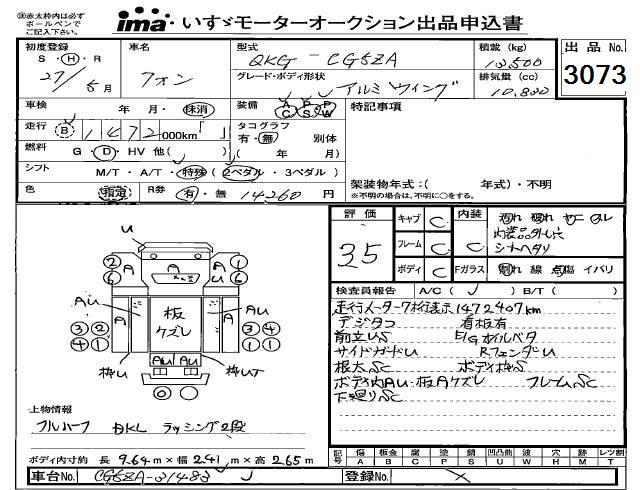 ㊟赤太枠内は必ず
ボールペンで
ご記入下さい。
ima いすゞモーターオークション出品申込書
初度登録 車名 型式 積載 (kg) 出品 No.
S・H・R QKG-CG5ZA 13,500 3073
27/5月 クオン グレード・ボディ形状 排気量 (cc)
アルミウィング 10,830
車検 年 月・抹消 装備 A P P C S W 特記事項
走行 B 1472,000km タコグラフ
有・無 別体
燃料 G・D・HV 他( ) ( 年 月)
シフト M/T・A/T・特殊(2ペダル・3ペダル) 架装物年式:( 年式)・不明
色 指定 R券 有・無 14260円 ※不明の場合は、不明に○をする。
評価 3.5
キャブ C 内装 切れ 破れ ヤニ スレ
内装品外し穴
フレーム C C シートヘタリ
ボディ C Fガラス 割れ 線 点傷 イバリ
検査員報告 A/C( ) B/T( )
走行メーター7桁表示1472407km
デジタコ 看板有
前立US E/Gオイルベタ
サイドガードU RフェンダU
根太SC ボディ枠S
ボディ内AU・板Aケズレ フレームSC
下廻りSC
U
2 A A 1
6 U 6
AU A 板 ケズレ A AU
3 2 3 4
4 1 1 1
AU AU
枠U 枠UT
0 0
上物情報
フルハーフ DKL ラッシング2段
ボディ内寸約 長 9.64m×幅 2.41m×高 2.65m
記号 傷 板金 腐 塗 錆 凹凸曲 波 穴 跡 レツ割
A B C P S U W H M T
車台No. CG5ZA-31483 登録No.